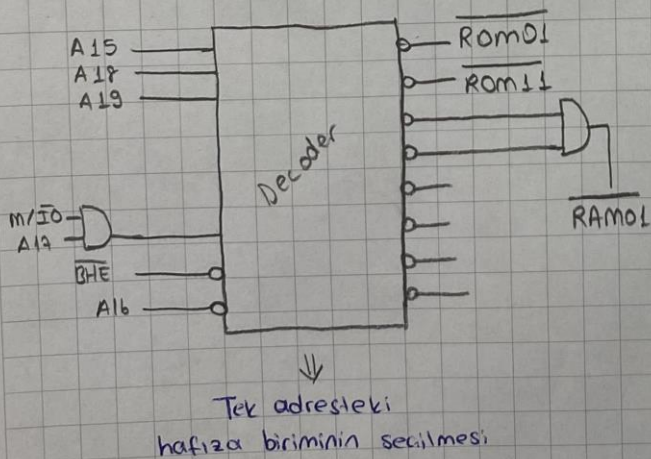 A15
A18
A19
M/I̅O̅
A17
B̅H̅E̅
A16
Decoder
R̅O̅M̅0̅1̅
R̅O̅M̅1̅1̅
R̅A̅M̅0̅1̅
Tek adresteki
hafıza biriminin seçilmesi